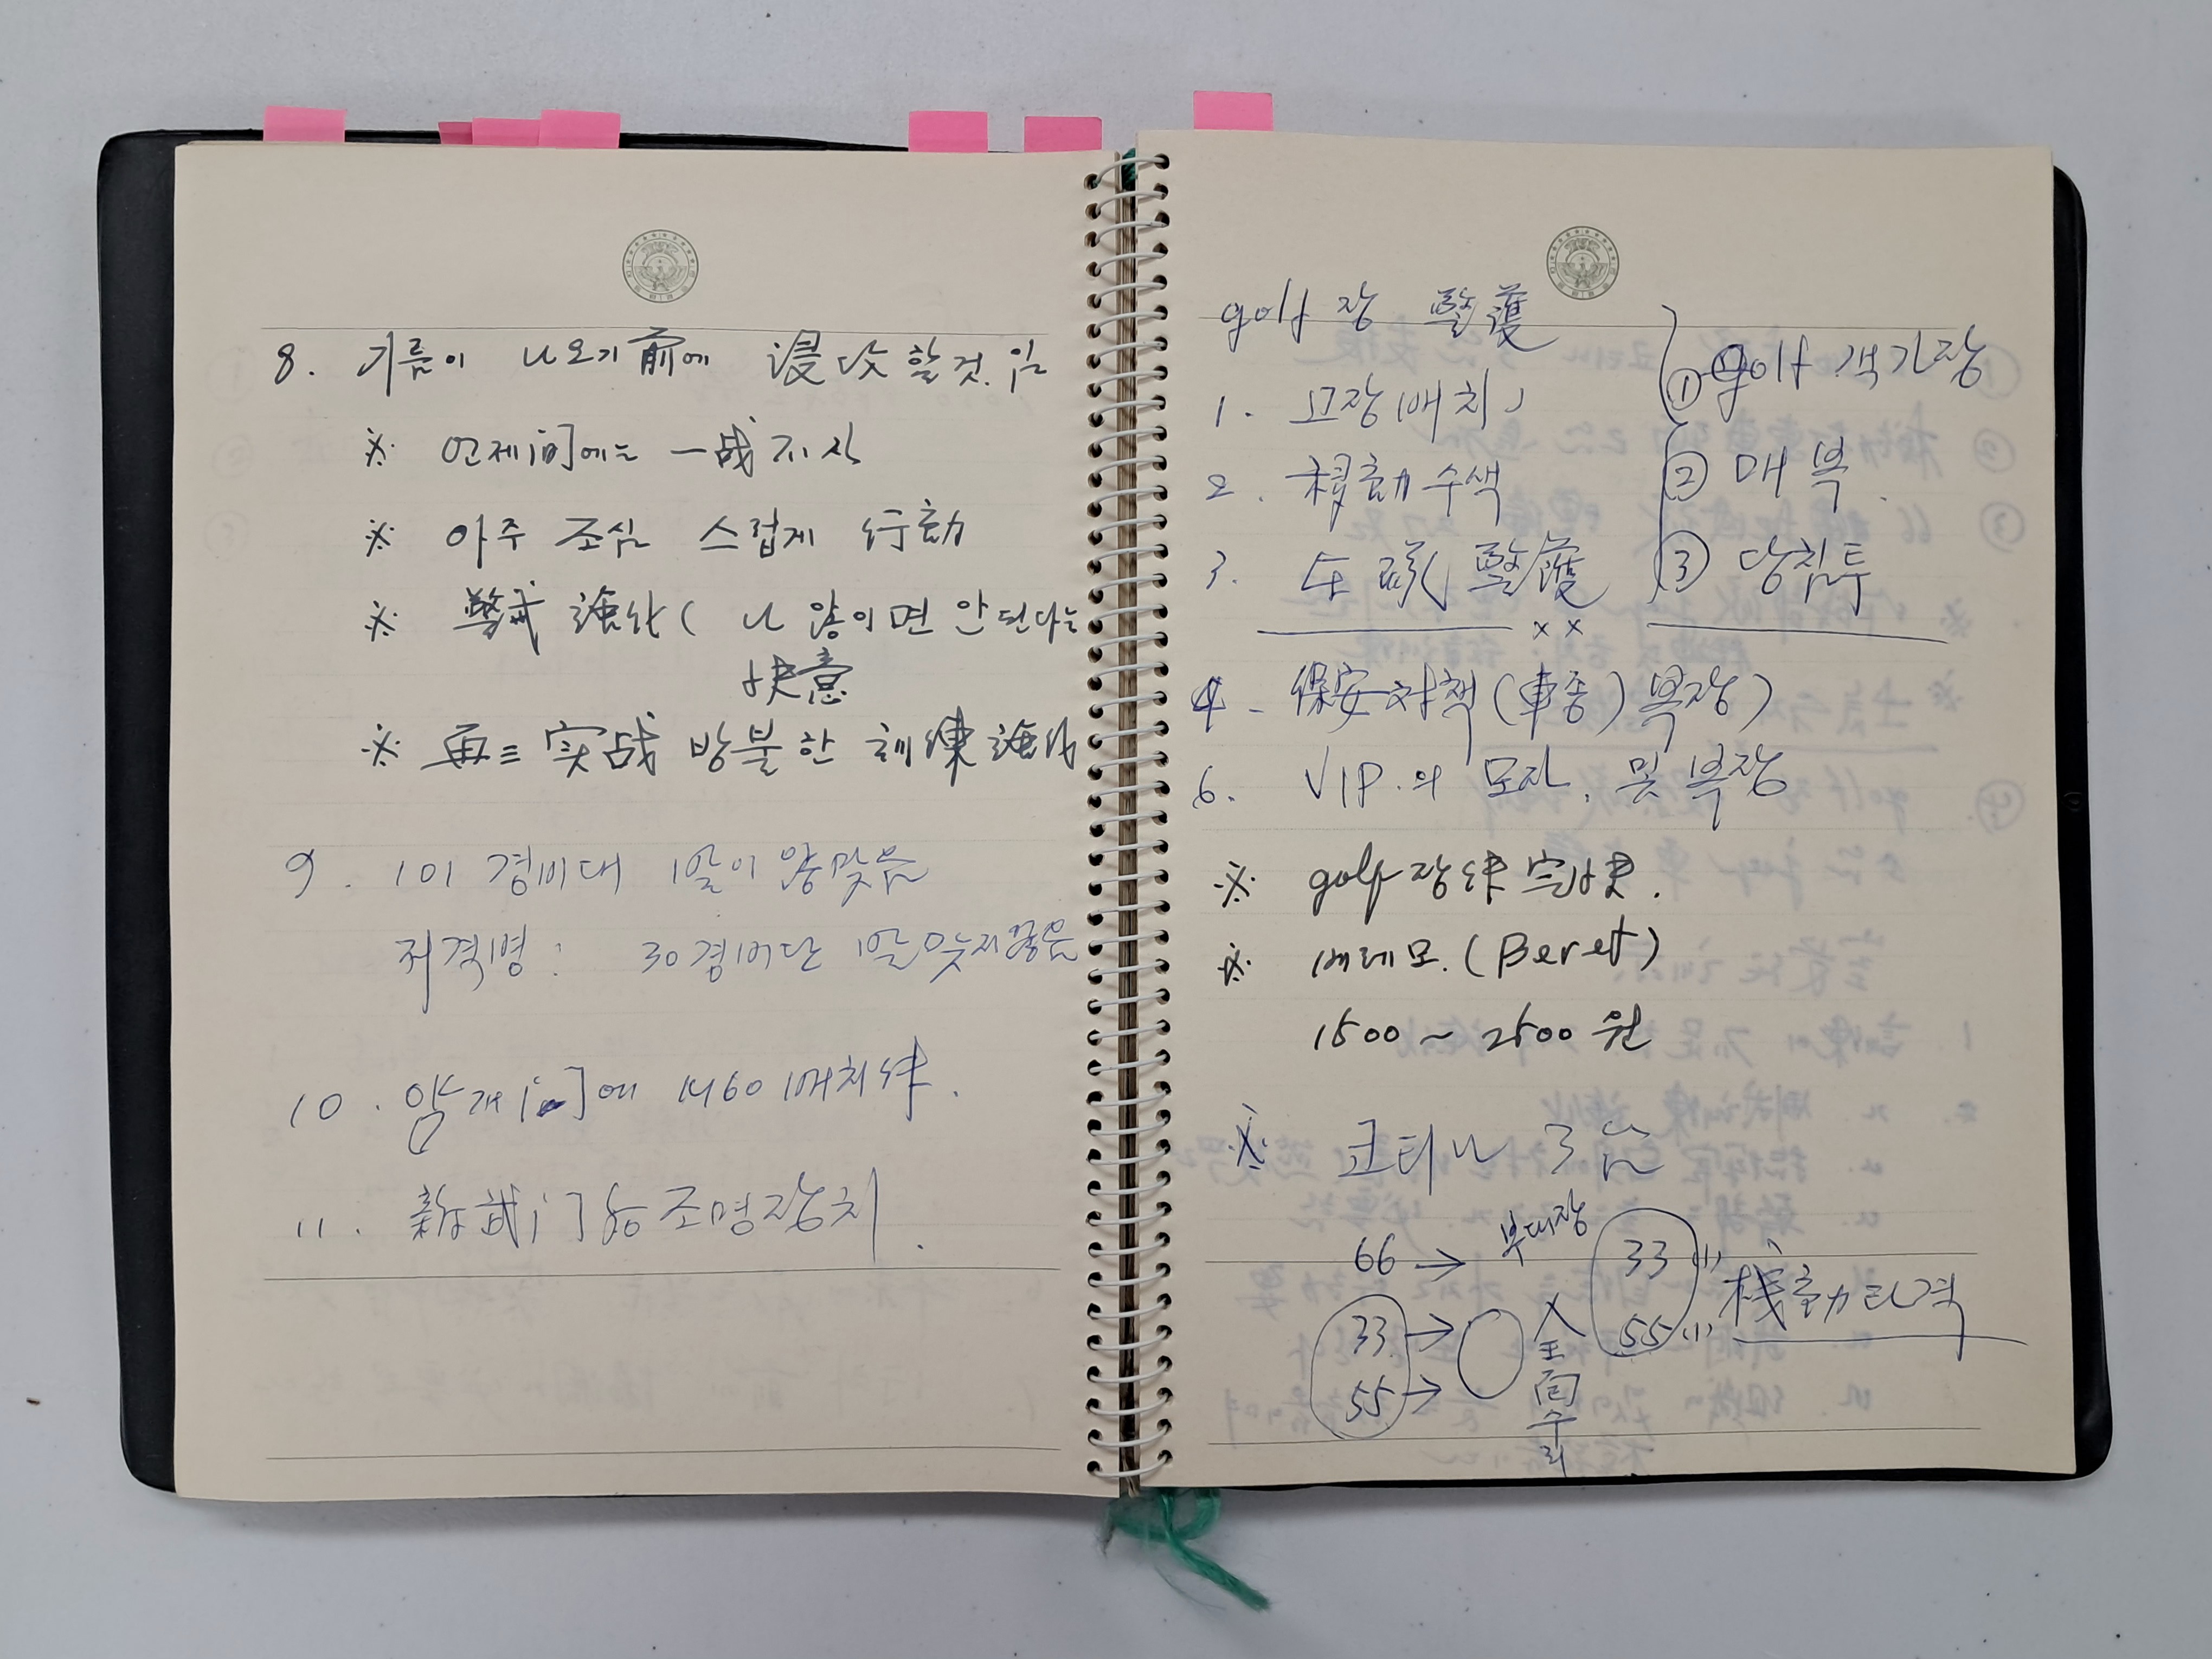 8. 기름이 나오기 前에 侵攻할것임
※ 언제인가에는 一戦不辞
※ 아주 조심스럽게 行動
※ 警戒 強化 ( 나 않이면 안된다는
決意
※ 再三 実战 방불한 訓練 強化
9. 101 경비대 1말이 않맞음
저격병 : 30경비단 1말 맞지않음
10. 앞개 에 M60 배치
11. 新武门 조명장치.
golf 장 警護
1. 고장배치
2. 移動수색
3. 警護
① golf 객가장
② 매복.
③ 당침투
× ×
4- 保安対책 (車종) 복장)
6. VIP.의 모자, 및 복장
※ golf 장
※ 베레모. (Beret)
1500 ~ 2500 원
※ 코티나 3台
66 → 부대장
33 →
55 →
全面수리
33 (1)
55 (1)
機動타격